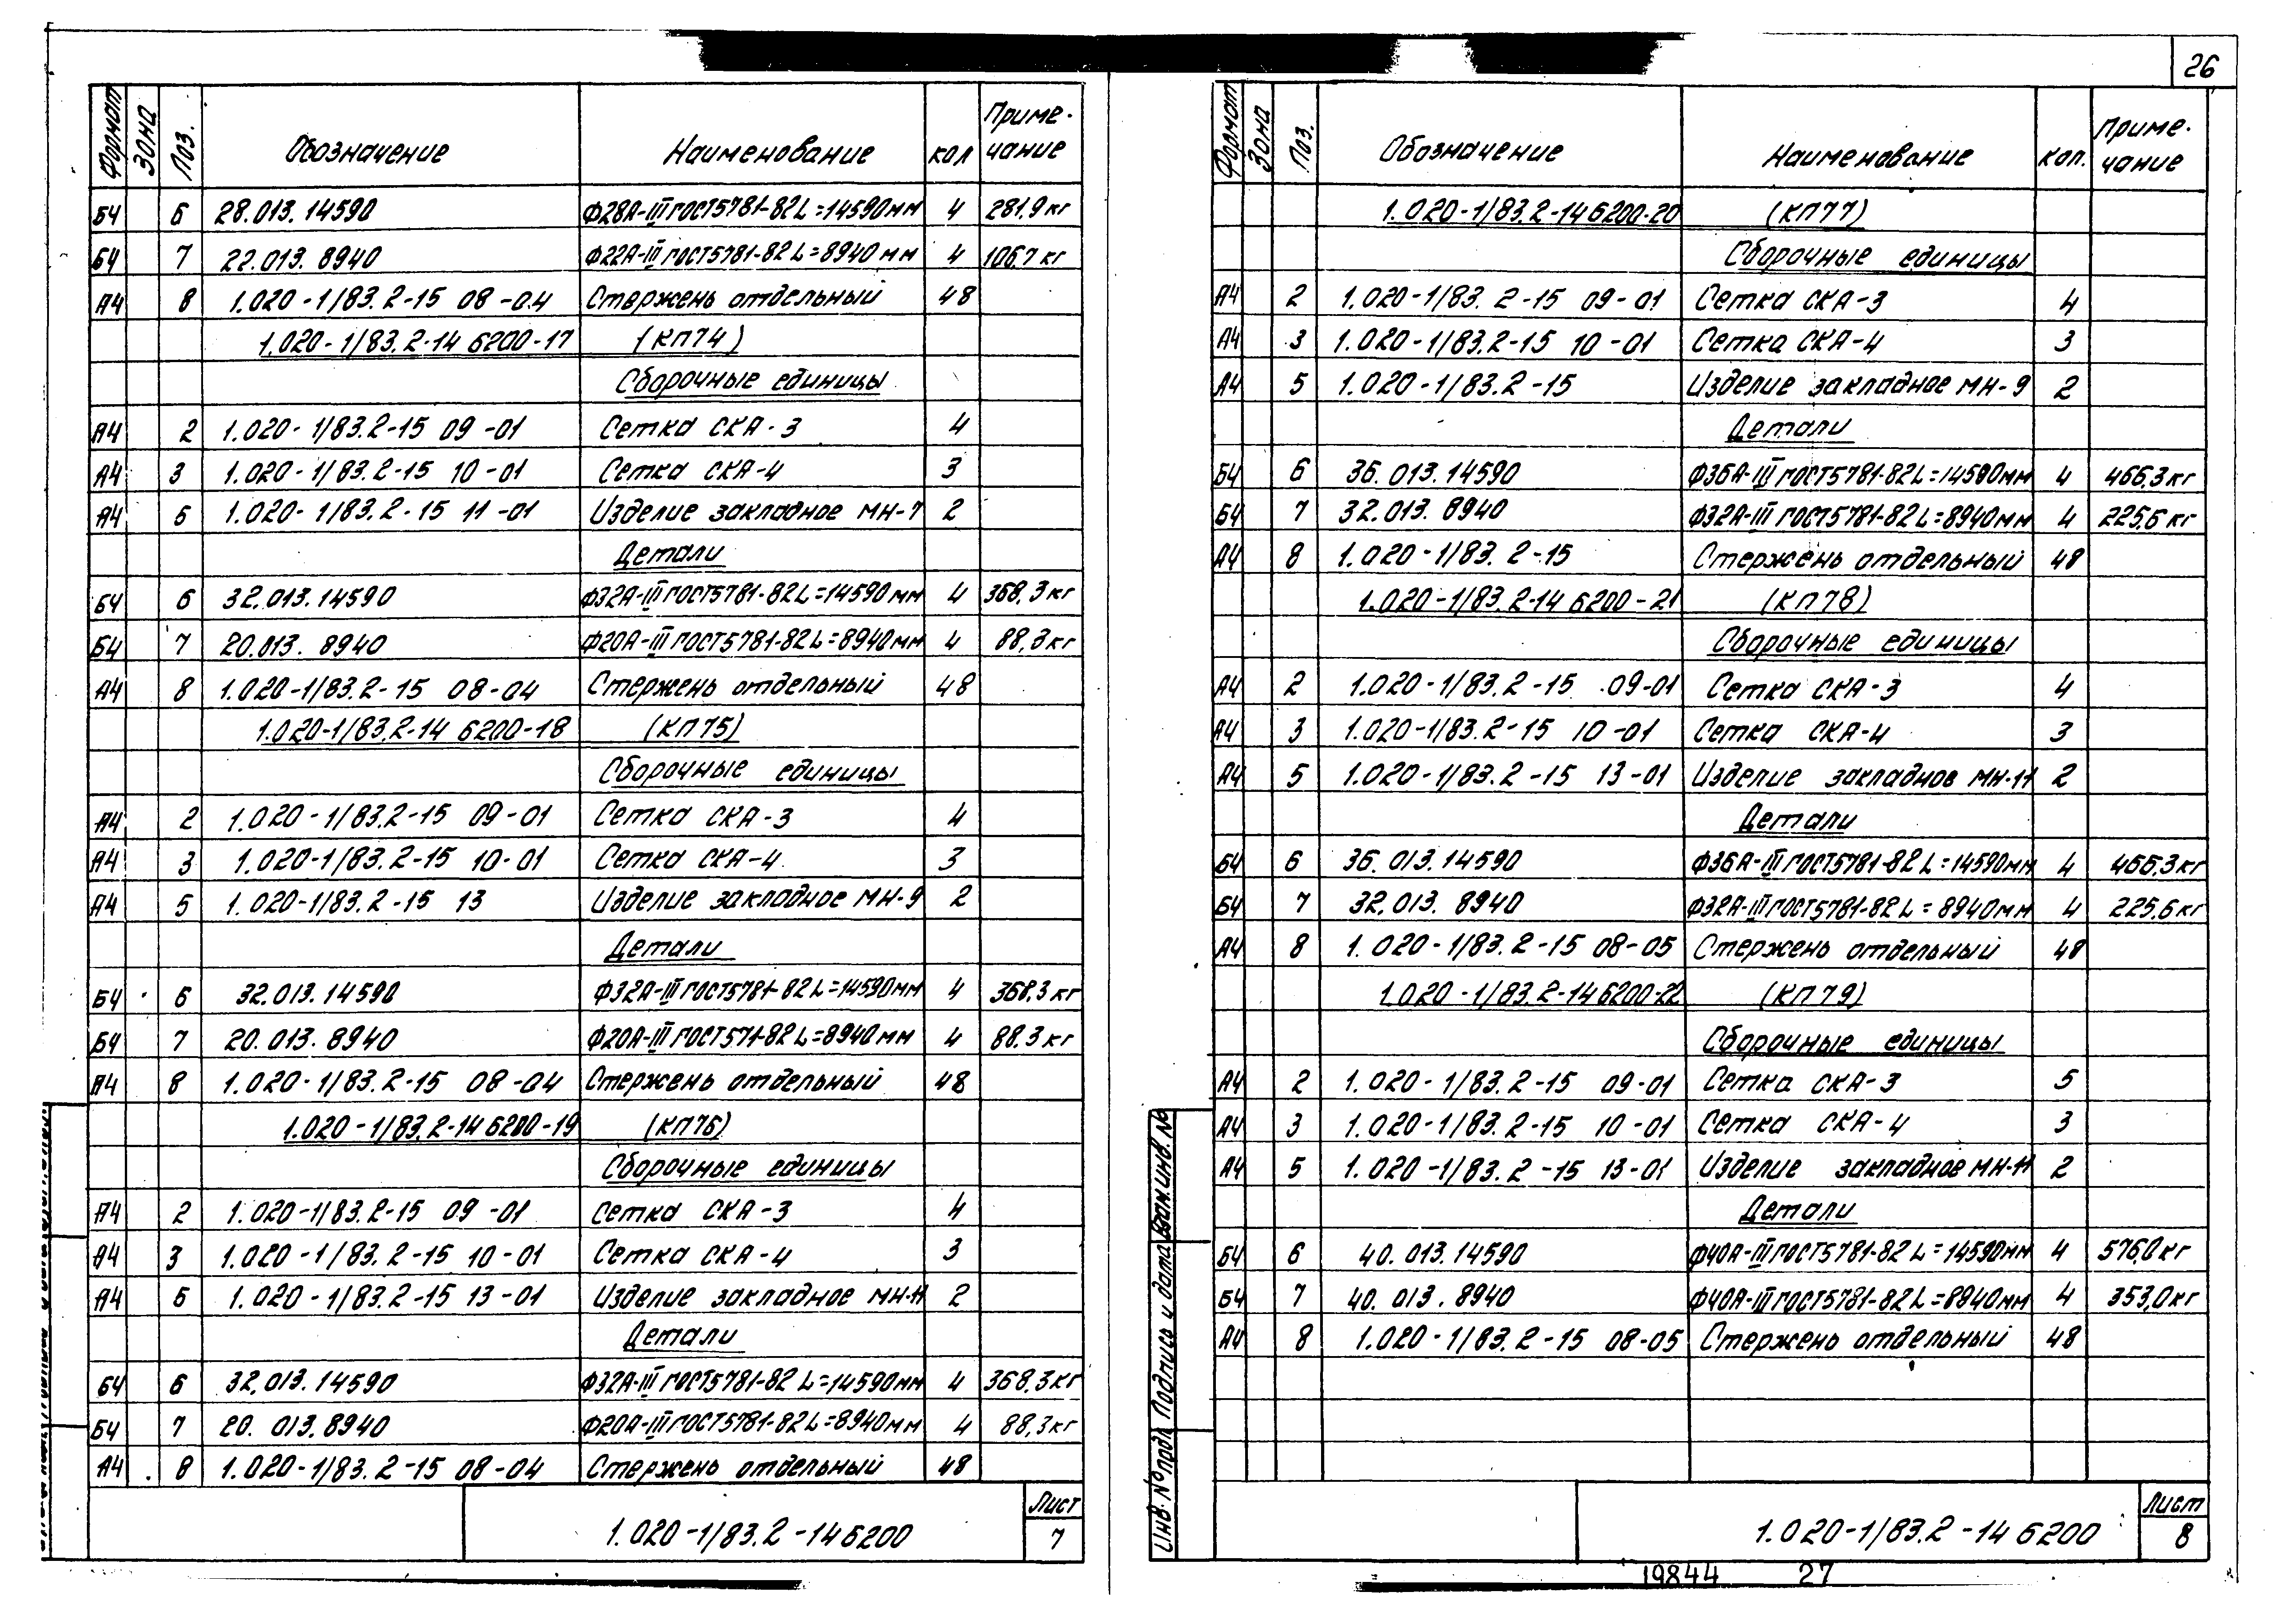 26
Формат Зона Поз. Обозначение Наименование Кол Приме-чание
Б4 6 28.013.14590 Ф28А-III ГОСТ5781-82 L=14590мм 4 281.9 кг
Б4 7 22.013.8940 Ф22А-III ГОСТ5781-82 L=8940мм 4 106.7 кг
А4 8 1.020-1/83.2-15 08-04 Стержень отдельный 48
1.020-1/83.2-14 6200-17 (КП74)
Сборочные единицы
А4 2 1.020-1/83.2-15 09-01 Сетка СКА-3 4
А4 3 1.020-1/83.2-15 10-01 Сетка СКА-4 3
А4 5 1.020-1/83.2-15 11-01 Изделие закладное МН-7 2
Детали
Б4 6 32.013.14590 Ф32А-III ГОСТ5781-82 L=14590мм 4 368,3 кг
Б4 7 20.013.8940 Ф20А-III ГОСТ5781-82 L=8940мм 4 88,3кг
А4 8 1.020-1/83.2-15 08-04 Стержень отдельный 48
1.020-1/83.2-14 6200-18 (КП75)
Сборочные единицы
А4 2 1.020-1/83.2-15 09-01 Сетка СКА-3 4
А4 3 1.020-1/83.2-15 10-01 Сетка СКА-4 3
А4 5 1.020-1/83.2-15 13 Изделие закладное МН-9 2
Детали
Б4 6 32.013.14590 Ф32А-III ГОСТ5781-82 L=14590мм 4 368,3 кг
Б4 7 20.013.8940 Ф20А-III ГОСТ571-82 L=8940мм 4 88.3 кг
А4 8 1.020-1/83.2-15 08-04 Стержень отдельный 48
1.020-1/83.2-14 6200-19 (КП76)
Сборочные единицы
А4 2 1.020-1/83.2-15 09-01 Сетка СКА-3 4
А4 3 1.020-1/83.2-15 10-01 Сетка СКА-4 3
А4 5 1.020-1/83.2-15 13-01 Изделие закладное МН-11 2
Детали
Б4 6 32,013.14590 Ф32А-III ГОСТ5781-82 L=14590мм 4 368,3кг
Б4 7 20.013.8940 Ф20А-III ГОСТ5781-82 L=8940мм 4 88,3кг
А4 8 1.020-1/83.2-15 08-04 Стержень отдельный 48
1.020-1/83.2-14 6200
Лист
7
Формат Зона Поз. Обозначение Наименование Кол. Приме-чание
1.020-1/83.2-14 6200-20 (КП77)
Сборочные единицы
А4 2 1.020-1/83.2-15 09-01 Сетка СКА-3 4
А4 3 1.020-1/83.2-15 10-01 Сетка СКА-4 3
А4 5 1.020-1/83.2-15 Изделие закладное МН-9 2
Детали
Б4 6 36.013.14590 Ф36А-III ГОСТ5781-82 L=14590мм 4 466,3 кг
Б4 7 32.013.8940 Ф32А-III ГОСТ5781-82 L=8940мм 4 225,6 кг
А4 8 1.020-1/83.2-15 Стержень отдельный 48
1.020-1/83.2-14 6200-21 (КП78)
Сборочные единицы
А4 2 1.020-1/83.2-15 09-01 Сетка СКА-3 4
А4 3 1.020-1/83.2-15 10-01 Сетка СКА-4 3
А4 5 1.020-1/83.2-15 13-01 Изделие закладное МН-11 2
Детали
Б4 6 36.013.14590 Ф36А-III ГОСТ5781-82 L=14590мм 4 466,3 кг
Б4 7 32.013.8940 Ф32А-III ГОСТ5781-82 L=8940мм 4 225,6 кг
А4 8 1.020-1/83.2-15 08-05 Стержень отдельный 48
1.020-1/83.2-14 6200-22 (КП79)
Сборочные единицы
А4 2 1.020-1/83.2-15 09-01 Сетка СКА-3 5
А4 3 1.020-1/83.2-15 10-01 Сетка СКА-4 3
А4 5 1.020-1/83.2-15 13-01 Изделие закладное МН-11 2
Детали
Б4 6 40.013.14590 Ф40А-III ГОСТ5781-82 L=14590мм 4 576,0кг
Б4 7 40.013.8940 Ф40А-III ГОСТ5781-82 L=8940мм 4 353,0кг
А4 8 1.020-1/83.2-15 08-05 Стержень отдельный 48
Инв. № подл. Подпись и дата Взам.инв. №
1.020-1/83.2-14 6200
Лист
8
19844 27